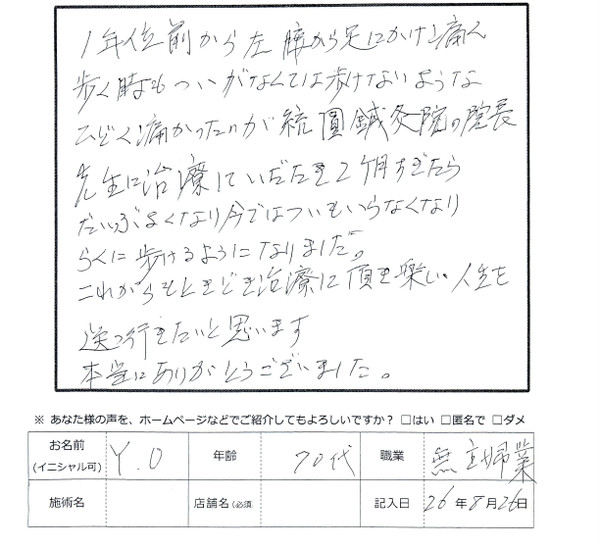 1年位前から左膝から足にかけ痛く
歩く時もついがなくては歩けないような
ひどく痛かったのが統圓鍼灸院の院長
先生に治療していただき2ヶ月すぎたら
だいぶよくなり今ではついもいらなくなり
らくに歩けるようになりました。
これからもときどき治療に頂き楽しい人生を
送って行きたいと思います
本当にありがとうございました。
※ あなた様の声を、ホームページなどでご紹介してもよろしいですか? □はい □匿名で □ダメ
お名前 (イニシャル可) Y.O 年齢 70代 職業 無 主婦業
施術名 店舗名(必須) 記入日 26年8月26日